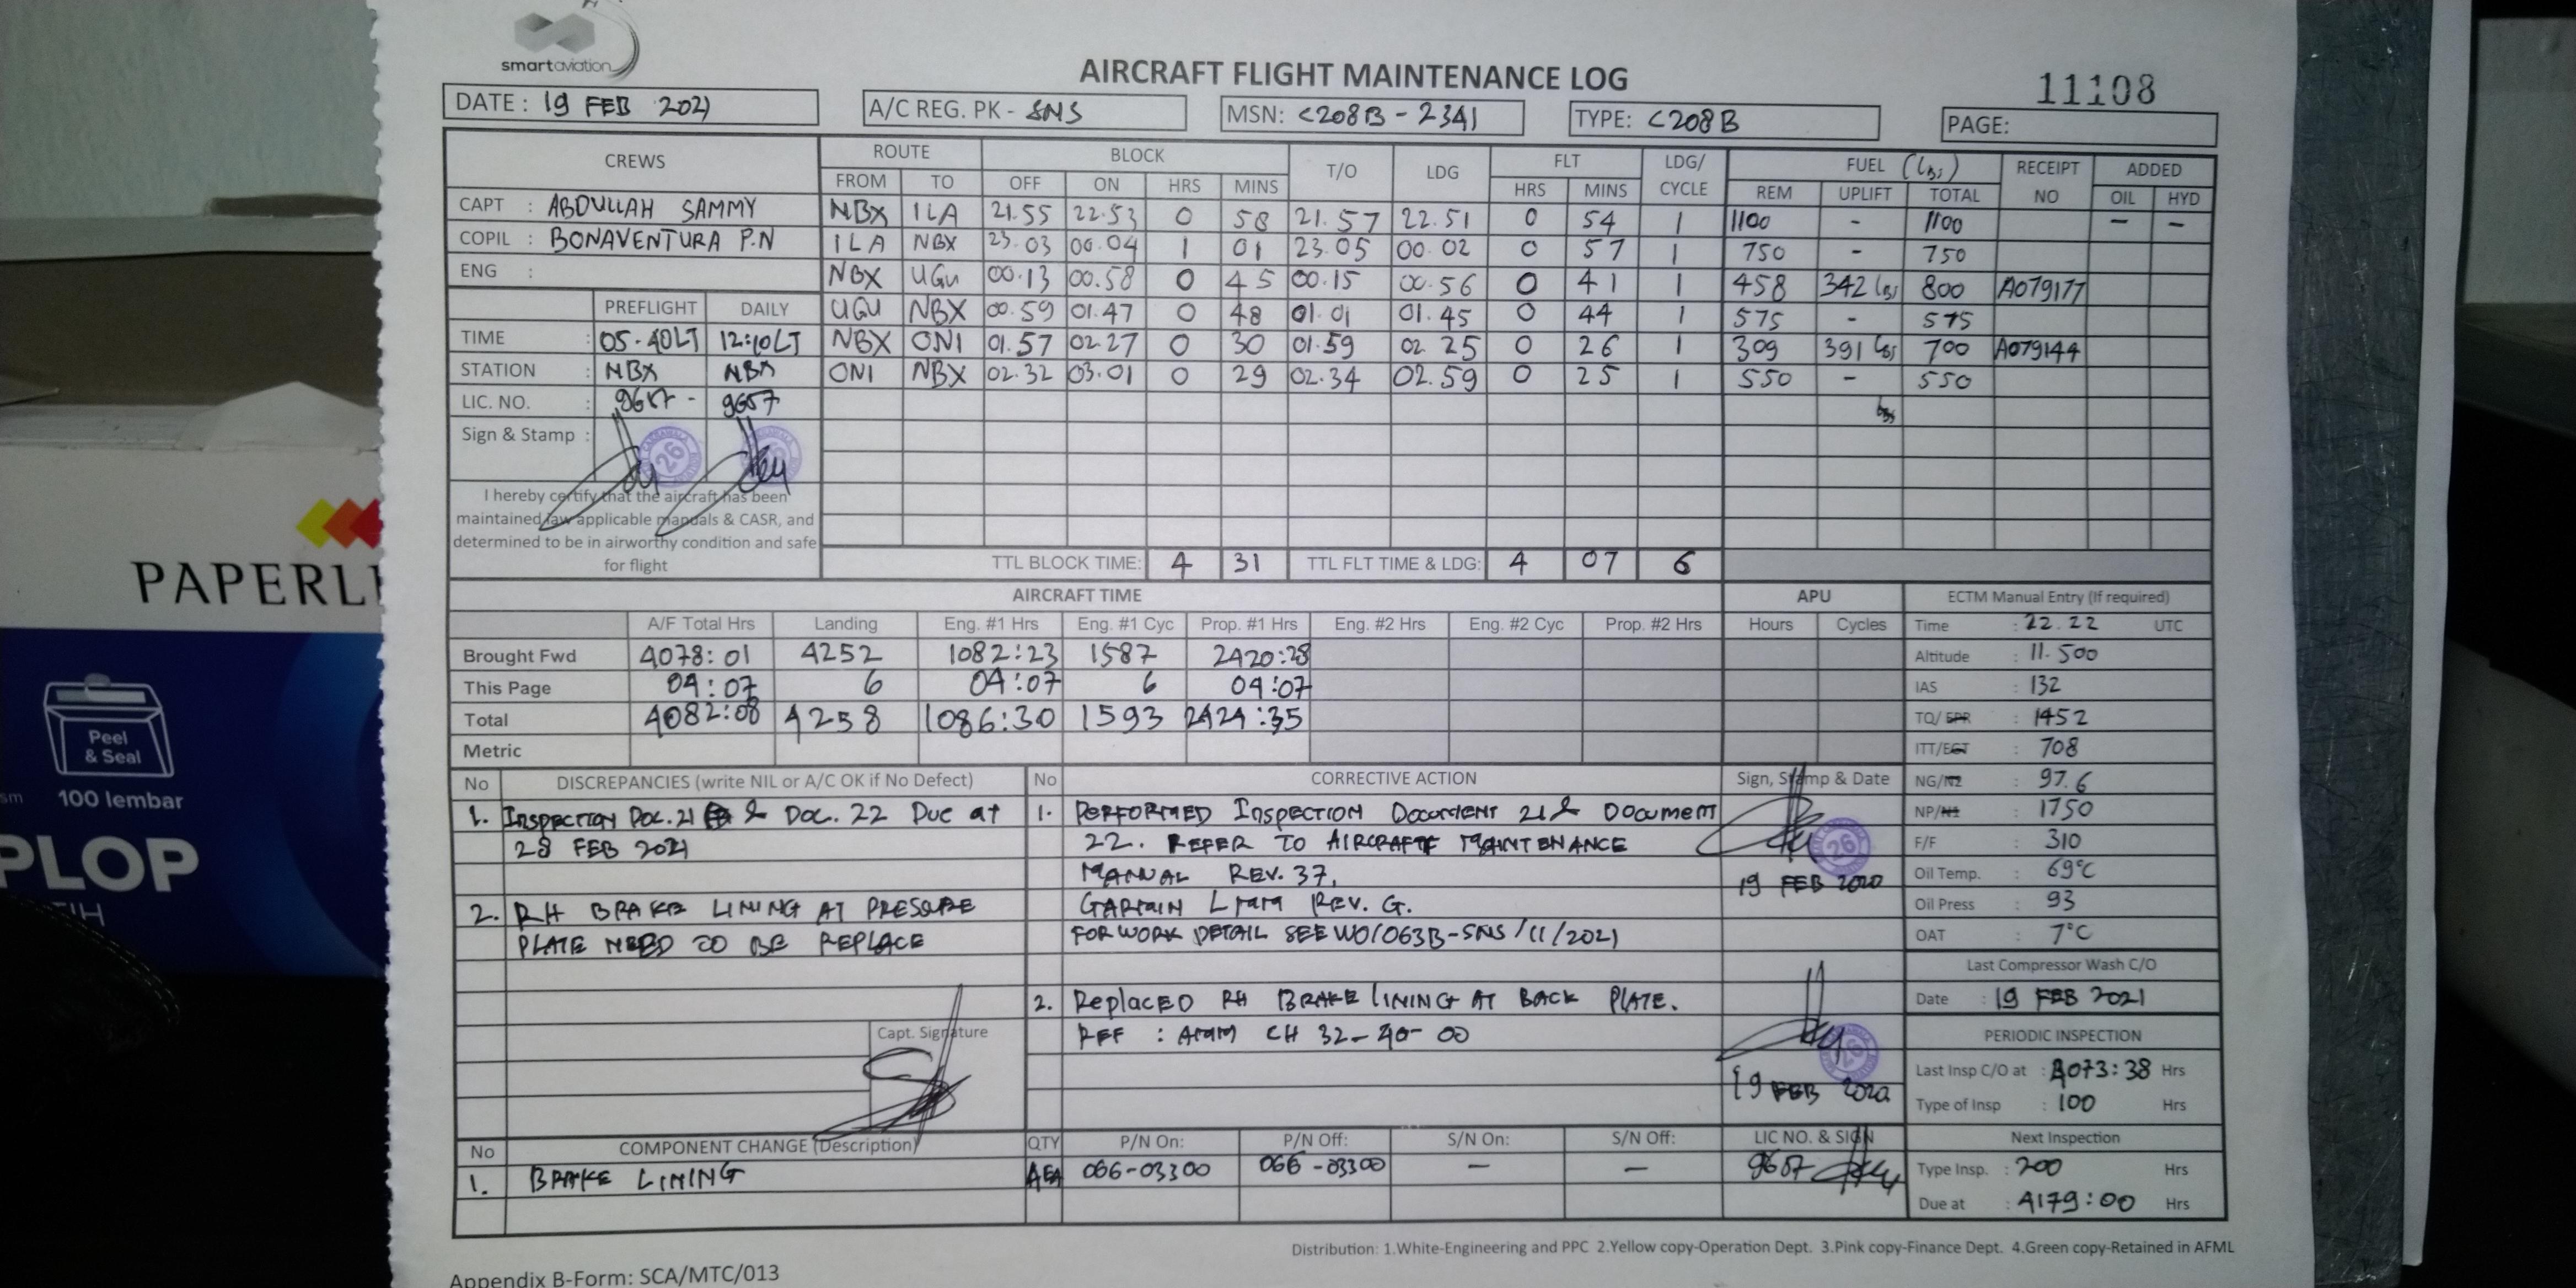 smartaviation
AIRCRAFT FLIGHT MAINTENANCE LOG
11108
DATE : 19 FEB 2021
A/C REG. PK - SNS
MSN: C208B - 2341
TYPE: C208B
PAGE:
CREWS
ROUTE BLOCK T/O LDG FLT LDG/ CYCLE FUEL (Lbs) RECEIPT NO ADDED
FROM TO OFF ON HRS MINS HRS MINS REM UPLIFT TOTAL OIL HYD
CAPT : ABDULLAH SAMMY
COPIL : BONAVENTURA P.N
ENG :
NBX ILA 21.55 22.53 0 58 21.57 22.51 0 54 1 1100 - 1100 - -
ILA NBX 23.03 00.04 1 01 23.05 00.02 0 57 1 750 - 750
NBX UGU 00.13 00.58 0 45 00.15 00.56 0 41 1 458 342 lbs 800 A079177
UGU NBX 00.59 01.47 0 48 01.01 01.45 0 44 1 575 - 575
NBX ONI 01.57 02.27 0 30 01.59 02.25 0 26 1 309 391 lbs 700 A079144
ONI NBX 02.32 03.01 0 29 02.34 02.59 0 25 1 550 - 550
lbs
PREFLIGHT DAILY
TIME : 05.40LT 12:10LT
STATION : NBX NBX
LIC. NO. : 9657 - 9657
Sign & Stamp :
26
I hereby certify that the aircraft has been
maintained iaw applicable manuals & CASR, and
determined to be in airworthy condition and safe
for flight
TTL BLOCK TIME: 4 31 TTL FLT TIME & LDG: 4 07 6
AIRCRAFT TIME
APU
A/F Total Hrs Landing Eng. #1 Hrs Eng. #1 Cyc Prop. #1 Hrs Eng. #2 Hrs Eng. #2 Cyc Prop. #2 Hrs Hours Cycles
Brought Fwd 4078:01 4252 1082:23 1587 2420:28
This Page 04:07 6 04:07 6 04:07
Total 4082:08 4258 1086:30 1593 2424:35
Metric
ECTM Manual Entry (If required)
Time : 22.22 UTC
Altitude : 11.500
IAS : 132
TQ/EPR : 1452
ITT/EGT : 708
NG/N2 : 97.6
NP/N1 : 1750
F/F : 310
Oil Temp. : 69°C
Oil Press : 93
OAT : 7°C
Last Compressor Wash C/O
Date : 19 FEB 2021
PERIODIC INSPECTION
Last Insp C/O at : 4073:38 Hrs
Type of Insp : 100 Hrs
Next Inspection
Type Insp. : 200 Hrs
Due at : 4179:00 Hrs
No DISCREPANCIES (write NIL or A/C OK if No Defect)
1. INSPECTION DOC. 21 & DOC. 22 DUE at
28 FEB 2021
2. RH BRAKE LINING AT PRESSURE
PLATE NEED TO BE REPLACE
Capt. Signature
No CORRECTIVE ACTION Sign, Stamp & Date
1. PERFORMED INSPECTION DOCUMENT 21 & DOCUMENT
22. REFER TO AIRCRAFT MAINTENANCE
MANUAL REV. 37,
GARMIN LMM REV. G.
FOR WORK DETAIL SEE WO/063B-SNS/11/2021
26
19 FEB 2020
2. REPLACED RH BRAKE LINING AT BACK PLATE.
REF : AMM CH 32-40-00
26
19 FEB 2020
No COMPONENT CHANGE (Description) QTY P/N On: P/N Off: S/N On: S/N Off: LIC NO. & SIGN
1. BRAKE LINING 4EA 066-03300 066-03300 - - 9657
Distribution: 1.White-Engineering and PPC 2.Yellow copy-Operation Dept. 3.Pink copy-Finance Dept. 4.Green copy-Retained in AFML
Appendix B-Form: SCA/MTC/013
PAPERLI
Peel
& Seal
100 lembar
PLOP